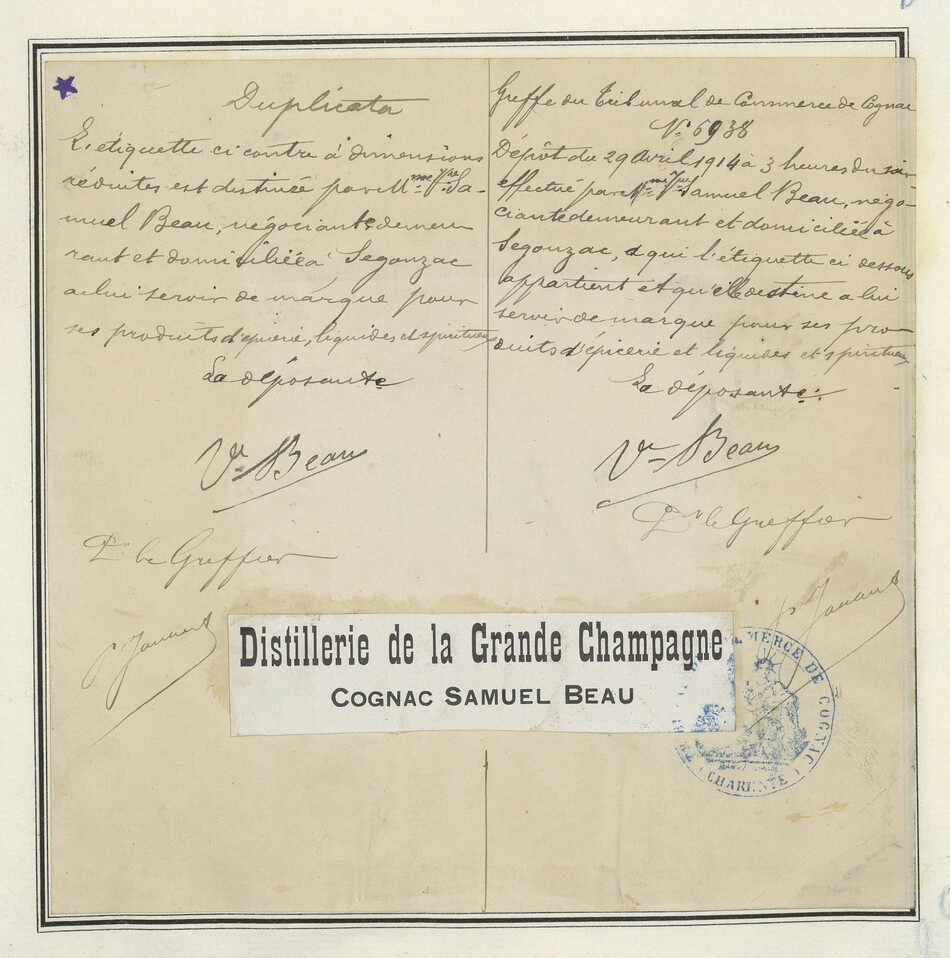 Duplicata
L'étiquette ci contre à dimensions
réduites est destinée par Mme Vve Sa-
muel Beau, négociante demeu
rant et domiciliée à Segonzac
a lui servir de marque pour
ses produits d'épicerie, liquides et spiritueux
La déposante
Ve Beau
Pr le Greffier
Greffe du Tribunal de Commerce de Cognac
No 6938
Dépôt du 29 Avril 1914 à 3 heures du soir
effectué par Mme Vve Samuel Beau, négo-
ciante demeurant et domiciliée à
Segonzac, a qui l'étiquette ci dessous
appartient et qu'elle destine a lui
servir de marque pour ses pro
duits d'épicerie et liquides et spiritueux
La déposante
Ve Beau
Pr le Greffier
Distillerie de la Grande Champagne
COGNAC SAMUEL BEAU
MERCE DE COGNAC
CHARENTE